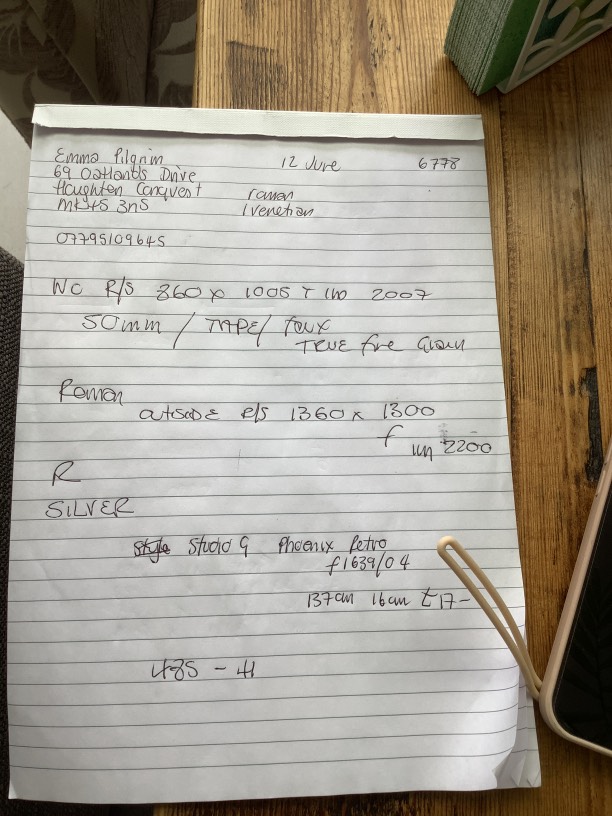 Emma Pilgrim
12 June
6778
69 Oatlands Drive
Houghton Conquest
roman
MK45 3NS
1 venetian
07795109645
WC R/S 860 x 1005 T 2007
50mm / TAPE / faux
TRUE fine Grain
Roman
outside R/S 1360 x 1300
f
un 2200
R
SILVER
Studio G Phoenix Petro
f1639/04
137cm 16cm £17-
485 - 41